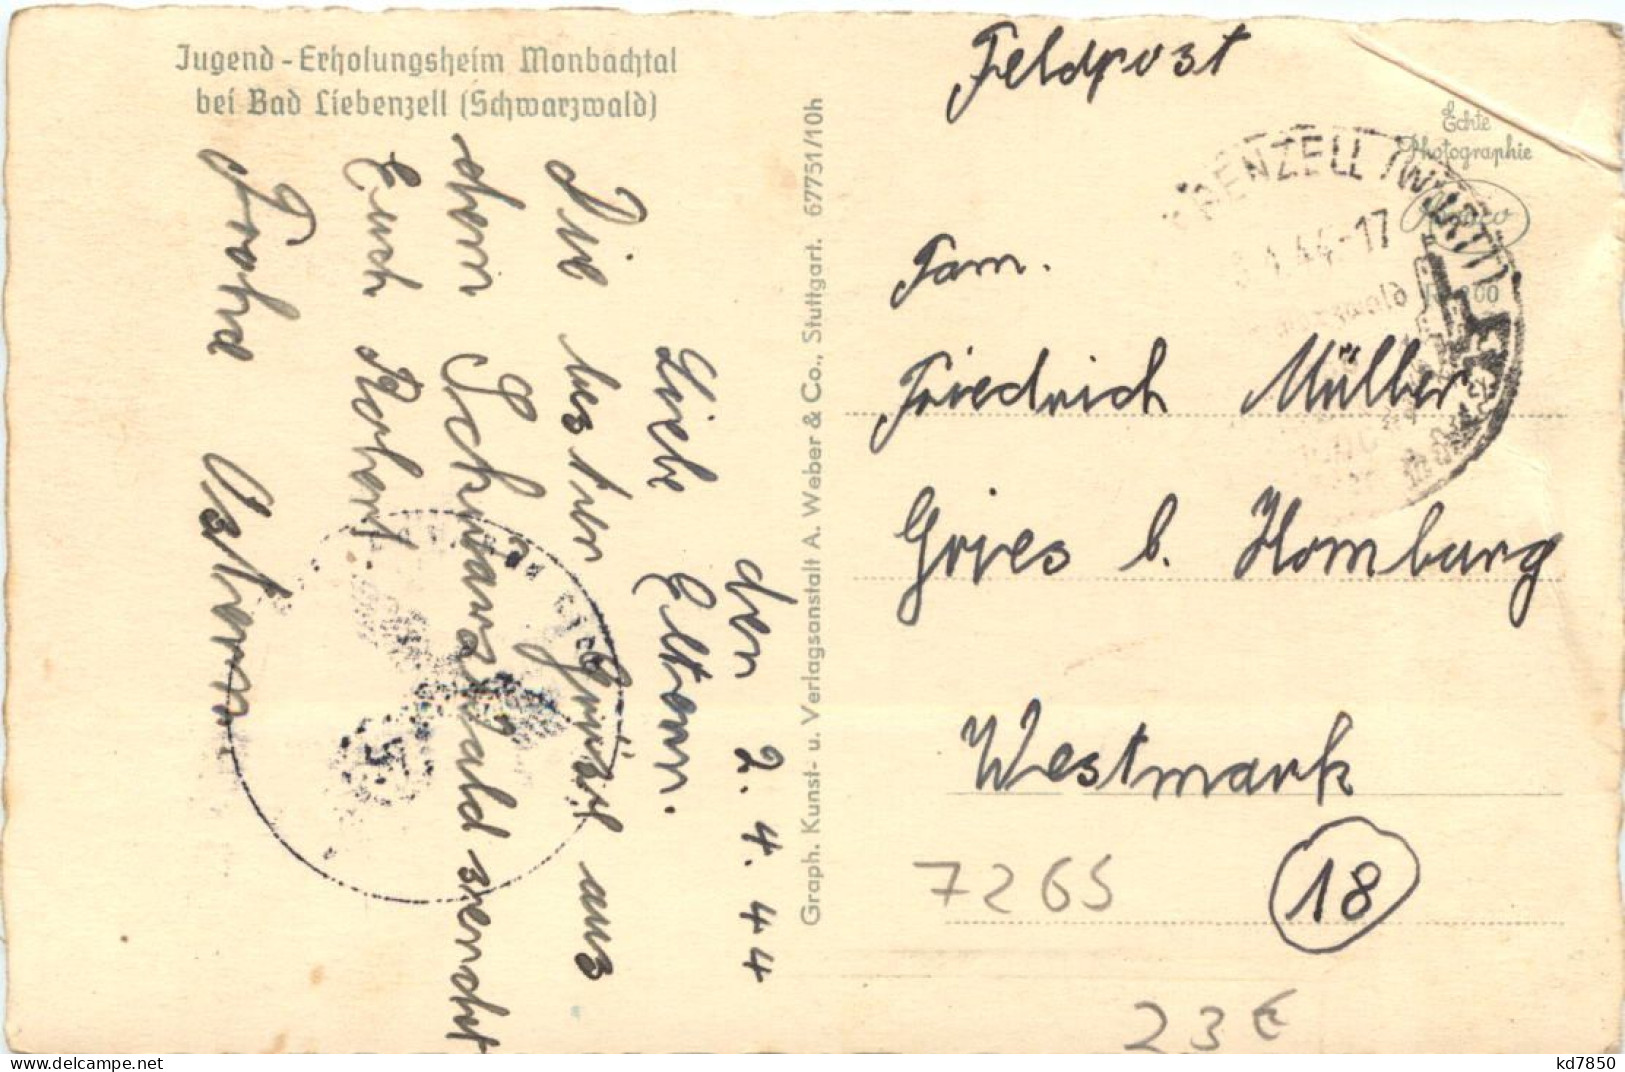 Jugend-Erholungsheim Monbachtal
bei Bad Liebenzell (Schwarzwald)
den 2.4.44
Liebe Eltern.
Die besten Grüße aus
dem Schwarzwald sendet
Euch Robert.
Frohe Ostern
Graph. Kunst- u. Verlagsanstalt A. Weber & Co., Stuttgart. 67751/10h
Feldpost
Echte
Photographie
ENZELL (WÜRTT)
4.44-17
Fam.
Friedrich Müller
Gries b. Homburg
Westmark
7265
18
23 €
kd7850